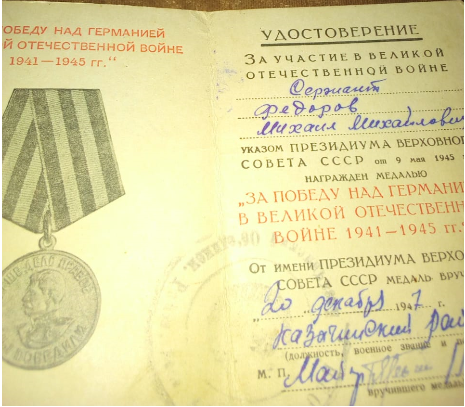 ПОБЕДУ НАД ГЕРМАНИЕЙ
ОТЕЧЕСТВЕННОЙ ВОЙНЕ
1941—1945 гг."
УДОСТОВЕРЕНИЕ
ЗА УЧАСТИЕ В ВЕЛИКОЙ
ОТЕЧЕСТВЕННОЙ ВОЙНЕ
Сержант
Федоров
Михаил Михайлович
УКАЗОМ ПРЕЗИДИУМА ВЕРХОВНО
СОВЕТА СССР от 9 мая 1945
НАГРАЖДЕН МЕДАЛЬЮ
„ЗА ПОБЕДУ НАД ГЕРМАНИ
В ВЕЛИКОЙ ОТЕЧЕСТВЕНН
ВОЙНЕ 1941—1945 гг."
От имени ПРЕЗИДИУМА ВЕРХО
СОВЕТА СССР МЕДАЛЬ ВРУ
"20" декабря 1947 г.
Казачинский Рай
(должность, военное звание и
М. П. Майор
вручившего медал